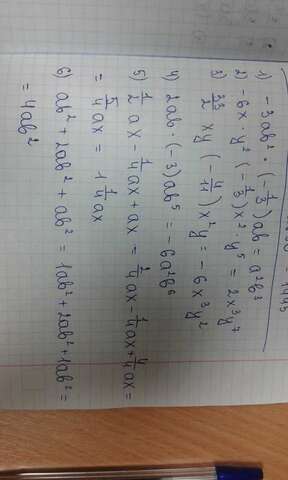 1) -3ab² · (-1/3)ab = a²b³
2) -6x · y² (-1/3)x² · y⁵ = 2x³y⁷
3) 33/2 xy (-4/11)x²y = -6x³y²
4) 2ab · (-3)ab⁵ = -6a²b⁶
5) 1/2 ax - 1/4 ax + ax = 2/4 ax - 1/4 ax + 4/4 ax =
= 5/4 ax = 1 1/4 ax
6) ab² + 2ab² + ab² = 1ab² + 2ab² + 1ab² =
= 4ab²